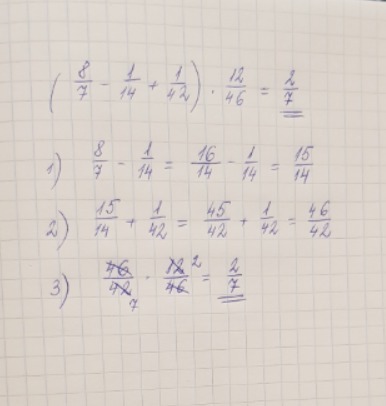 ( 8/7 - 1/14 + 1/42 ) · 12/46 = 2/7
1) 8/7 - 1/14 = 16/14 - 1/14 = 15/14
2) 15/14 + 1/42 = 45/42 + 1/42 = 46/42
3) 46/42 7 · 12 2/46 = 2/7